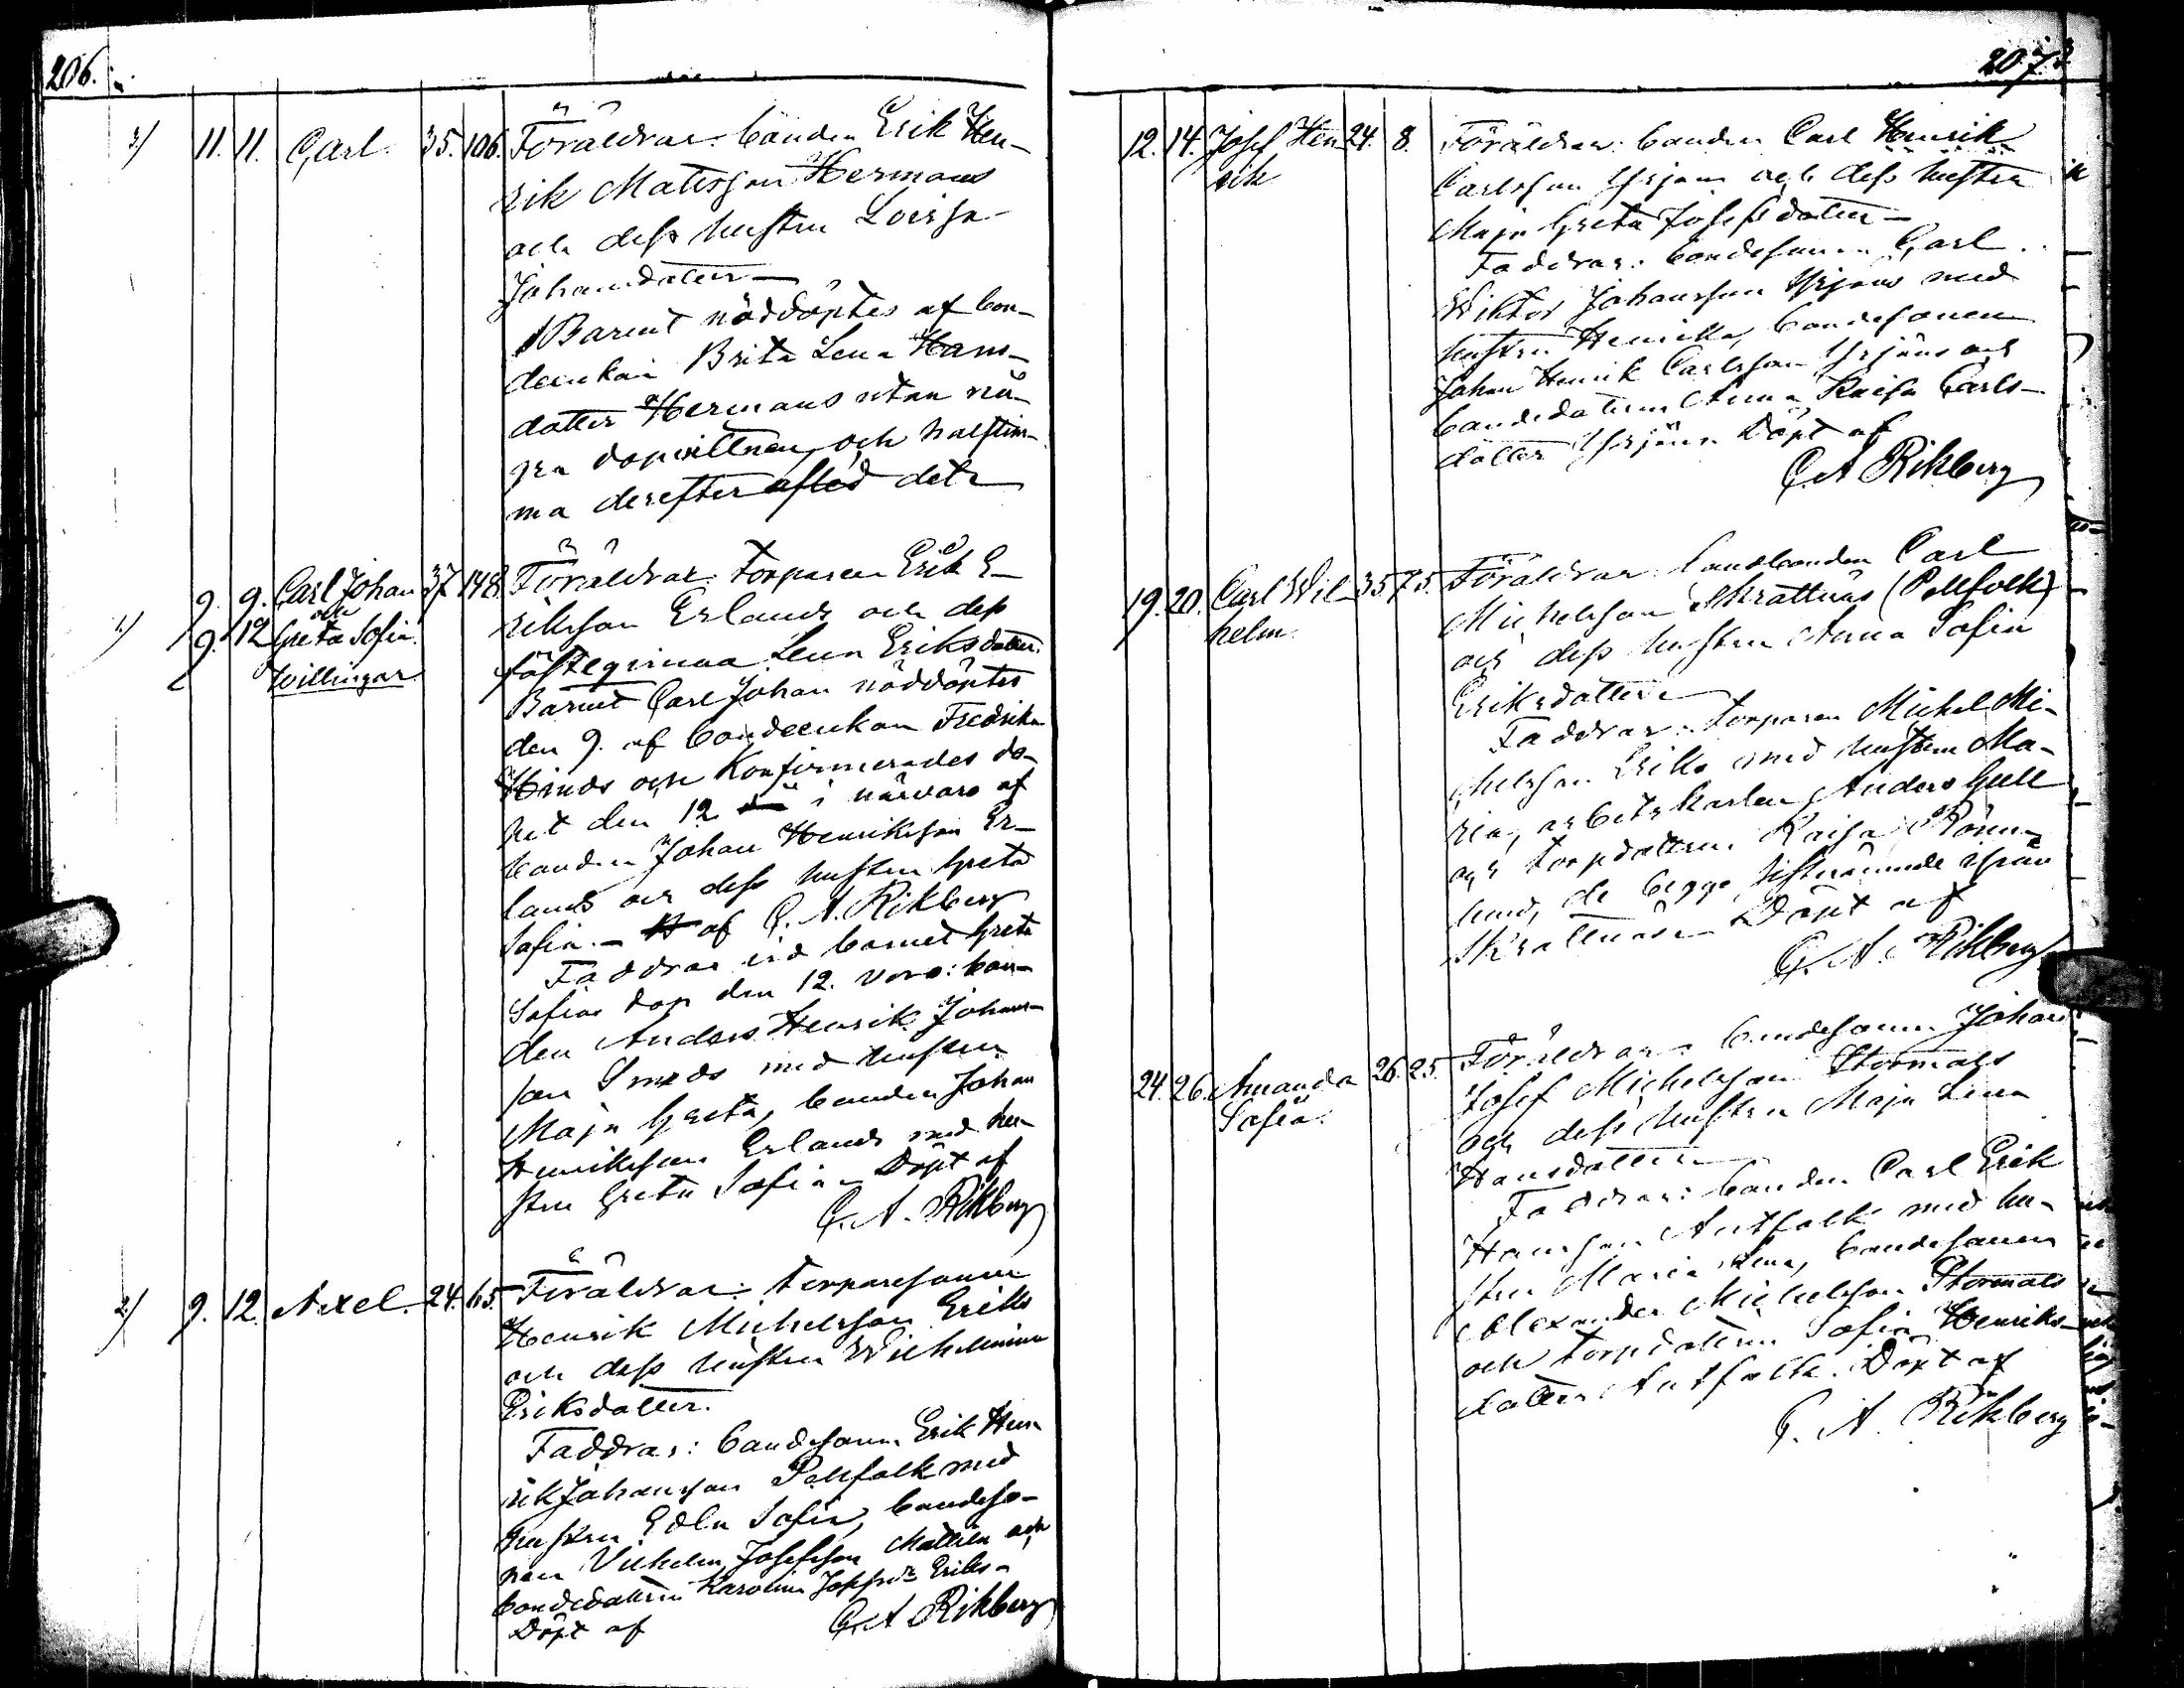 206.
3) 11. 11. Carl. 35. 106. Föräldrar: bonden Erik Hen-
rik Matsson Hermans
och dess hustru Lovisa
Johansdotter
Barnet nöddöptes af bon-
deenkan Brita Lena Hans-
dotter Hermans utan nå-
gra dopvittnen, och halftim-
ma derefter afled det
1) 9. 9. Carl Johan 37 148. Föräldrar: torparen Erik E-
och
9. 12 Greta Sofia.
Tvillingar
riksson Erlands och dess
fästeqvinna Lena Eriksdotter.
Barnet Carl Johan nöddöptes
den 9. af bondeenkan Fredrika
Hinds och Konfirmerades do-
pet den 12. i närvaro af
bonden Johan Henriksson Er-
lands och dess hustru Greta
Sofia. – af C. A. Rikberg
Faddrar vid barnet Greta
Sofias dop den 12. voro: bon-
den Anders Henrik Johans-
son Smeds med hustru
Maja Greta, bonden Johan
Henriksson Erlands med hu-
stru Greta Sofia Döpt af
C. A. Rikberg
2) 9. 12. Axel 24. 65. Föräldrar: torparesonen
Henrik Michelsson Eriks
och dess hustru Wilhelmina
Eriksdotter.
Faddrar: bondesonen Erik Hen
rik Johansson Pellfolk med
hustru Edla Sofia, bondeso-
nen Vilhelm Josefsson och
bondedottern Karolina Eriks
Döpt af C. A Rikberg
207.
12. 14. Josef Hen- 24. 8. Föräldrar: bonden Carl Henrik
rik
Carlsson Yrjans och dess hustru
Maja Greta Josefsdotter –
Faddrar: bondesonen Carl
Wiktor Johansson Yrjans med
hustru Henrika, bondesonen
Johan Henrik Carlsson Yrjans och
bondedottern Anna Kaisa Carls-
dotter Yrjans. Döpt af
C. A Rikberg
19. 20. Carl Wil- 35 75. Föräldrar: landbonden Carl
helm.
Michelsson Skrattnäs (Pellfolk)
och dess hustru Anna Sofia
Eriksdotter
Faddrar: torparen Michel Mi-
chelsson Eriks med hustru Ma-
ria, arbetskarlen Anders Gull
och torpdottern Kaisa Rönn-
lund, de begge sistnämnde ifrån
Skrattnäs Döpt af
C. A. Rikberg
24. 26. Amanda 26. 25. Föräldrar: bondesonen Johan
Sofia.
Josef Michelsson Stormats
och dess hustru Maja Lena
Hansdotter
Faddrar: bonden Carl Erik
Hansson Antfolk med hu-
stru Maria Lena, bondesonen
Alexander Michelsson Stormats
och torpdottern Sofia Henriks-
dotter Antfolk. Döpt af
C. A. Rikberg